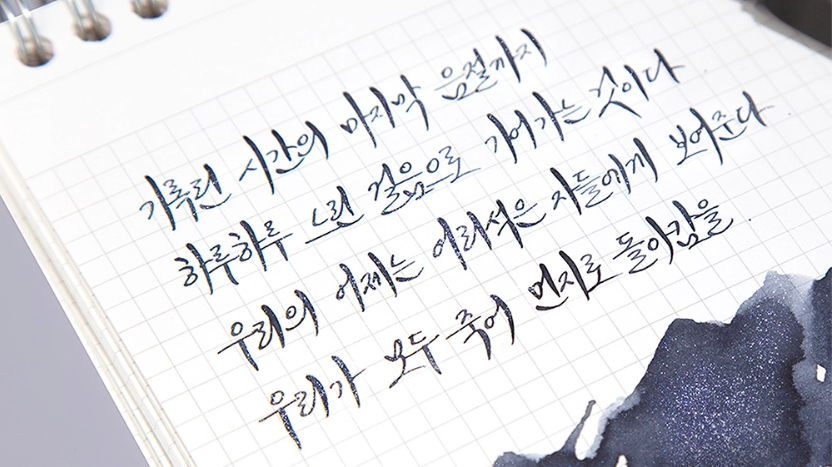 기록된 시간의 마지막 음절까지
하루하루 느린 걸음으로 기어가는 것이다
우리의 어제는 어리석은 자들에게 보여준다
우리가 모두 죽어 먼지로 돌아감을.